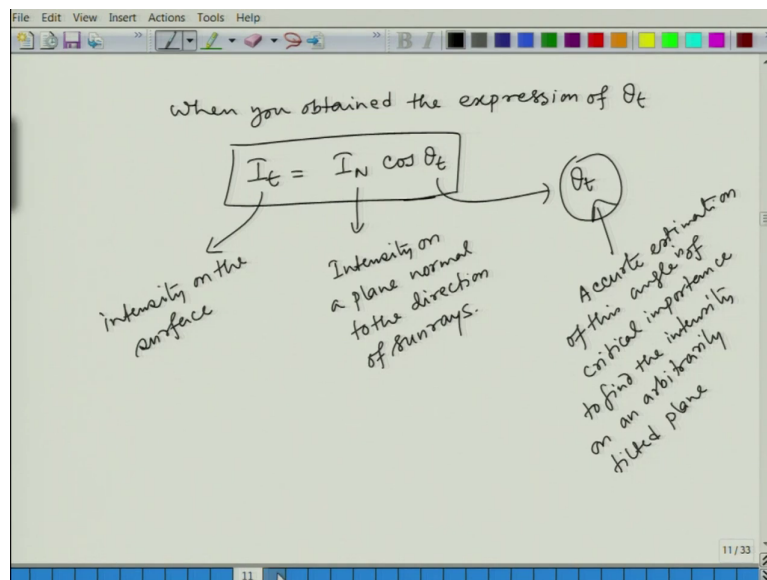 File Edit View Insert Actions Tools Help
B I
When you obtained the expression of θt
It = IN cos θt
θt
intensity on the
surface
Intensity on
a plane normal
to the direction
of sunrays.
Accurte estimation
of this angle is of
critical importance
to find the intensity
on an arbitrarily
tilted plane
11 / 33
11